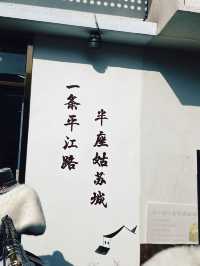 一条平江路
半座姑苏城